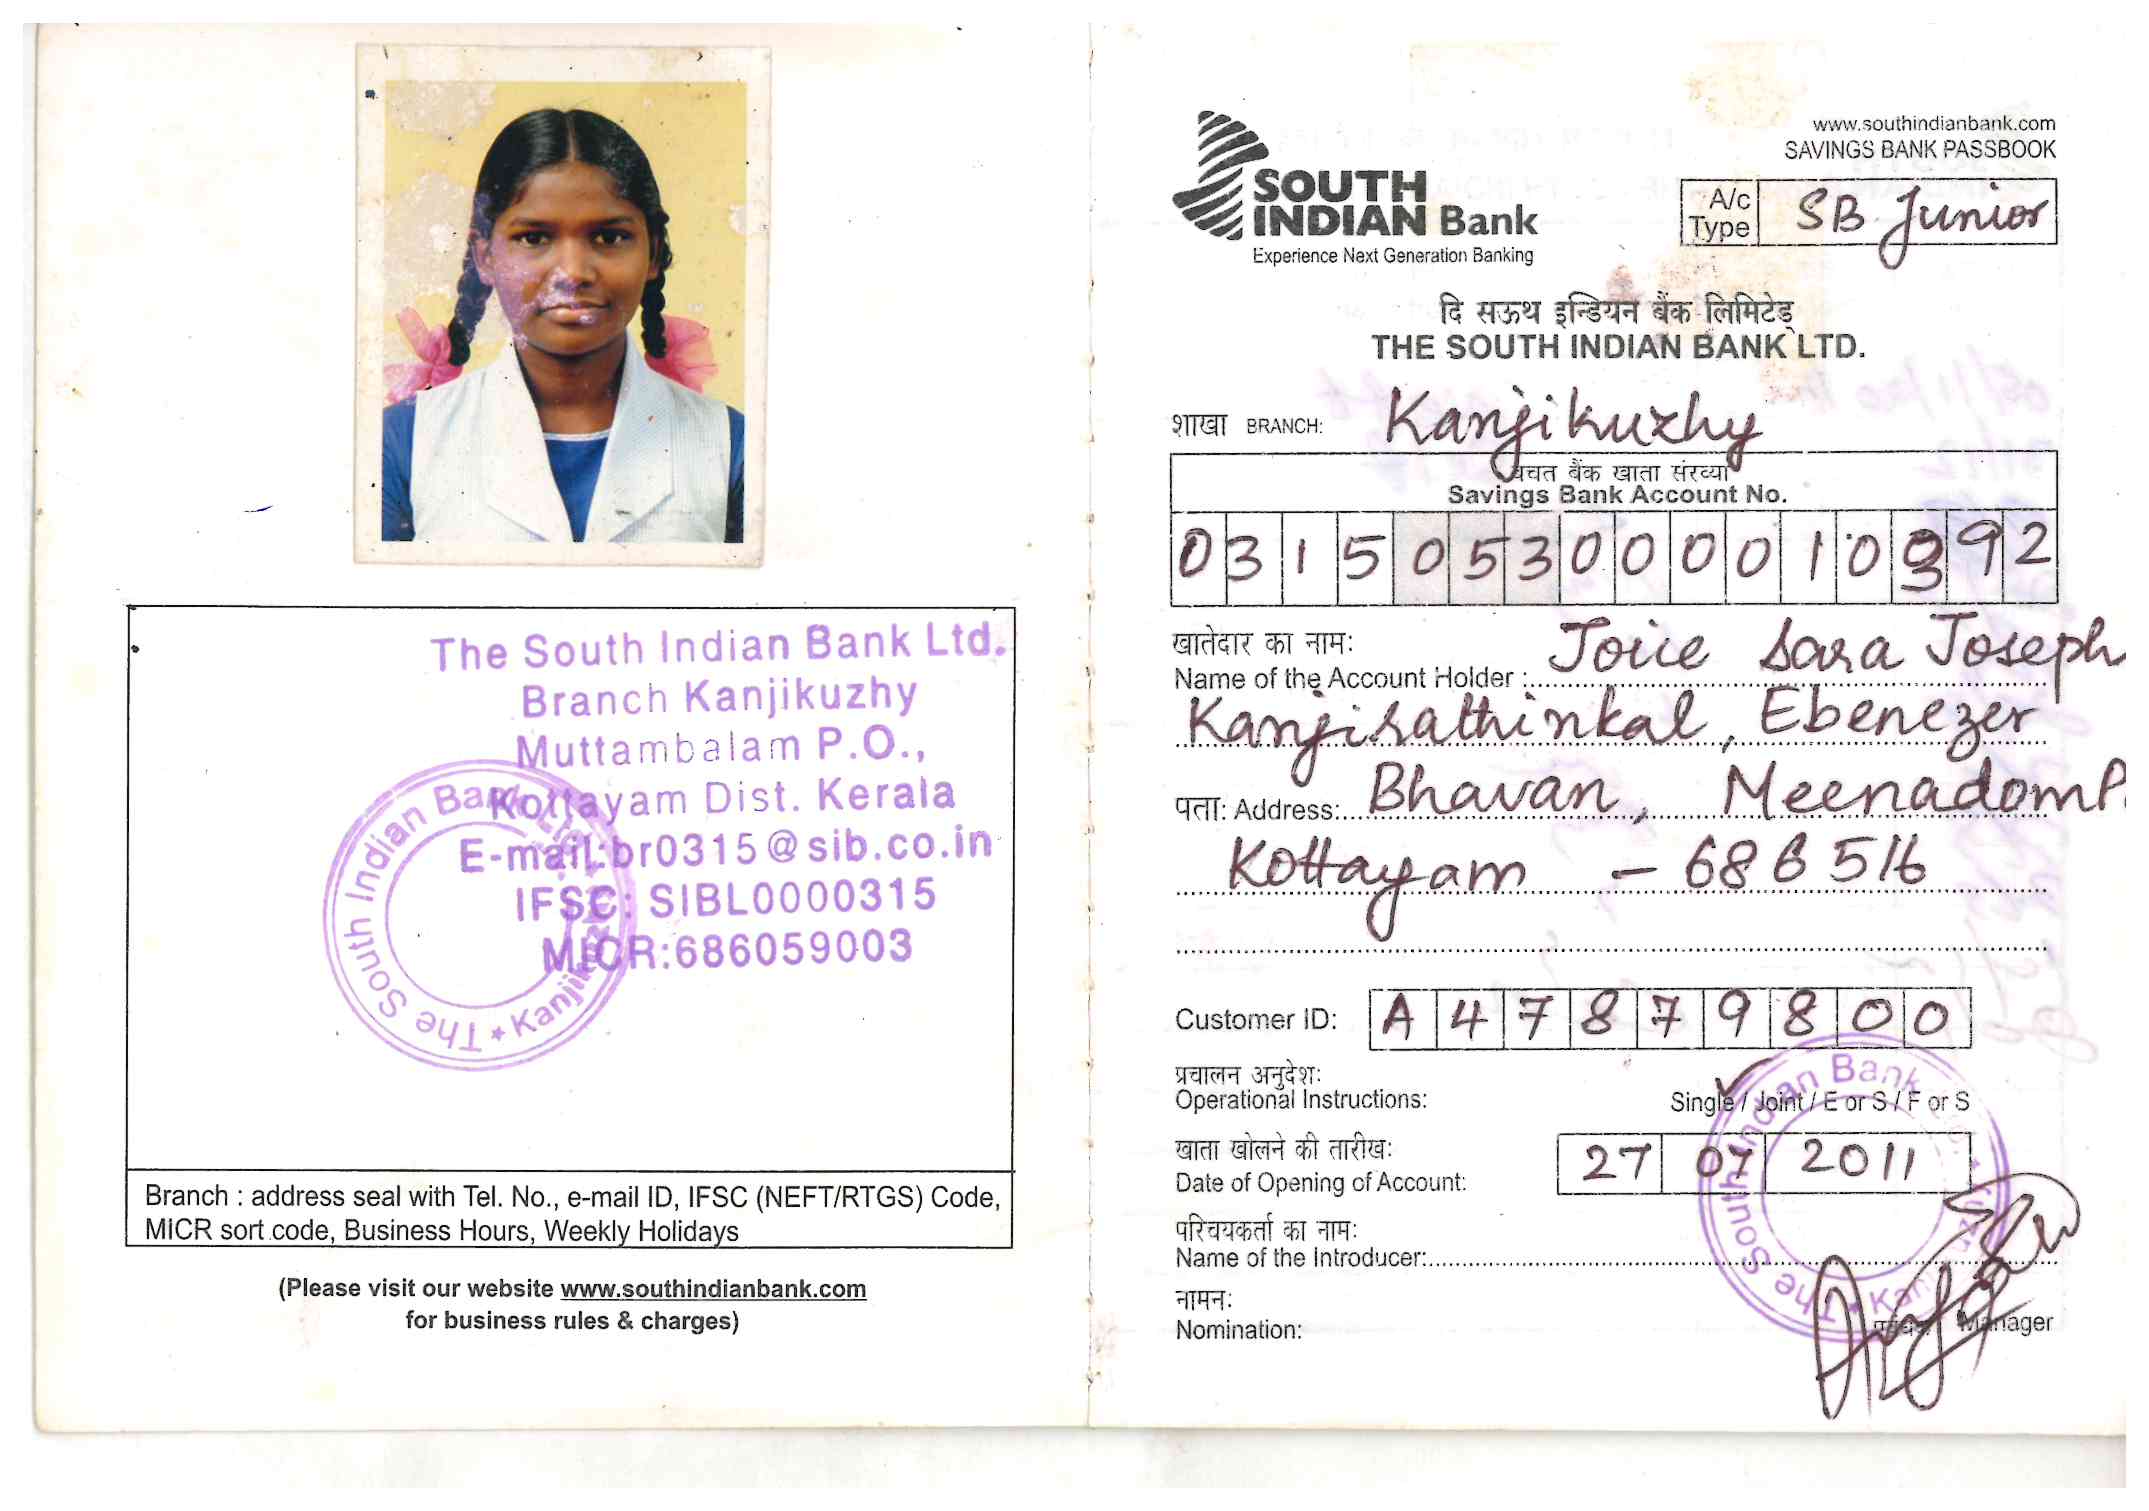 The South Indian Bank Ltd.
Branch Kanjikuzhy
Muttambalam P.O.,
Kottayam Dist. Kerala
E-mail:br0315@sib.co.in
IFSC: SIBL0000315
MICR:686059003
The South Indian Bank Ltd. ★ Kanjikuzhy
Branch : address seal with Tel. No., e-mail ID, IFSC (NEFT/RTGS) Code,
MICR sort code, Business Hours, Weekly Holidays
(Please visit our website www.southindianbank.com
for business rules & charges)
www.southindianbank.com
SAVINGS BANK PASSBOOK
SOUTH
INDIAN Bank
Experience Next Generation Banking
A/c Type SB Junior
दि सऊथ इन्डियन बैंक लिमिटेड
THE SOUTH INDIAN BANK LTD.
शाखा BRANCH: Kanjikuzhy
बचत बैंक खाता संख्या
Savings Bank Account No.
0 3 1 5 0 5 3 0 0 0 0 1 0 3 9 2
खातेदार का नाम:
Name of the Account Holder : Joice Sara Joseph
Kanjirathinkal, Ebenezer
पता: Address: Bhavan, Meenadom P.
Kottayam - 686 516
Customer ID: A 4 7 8 7 9 8 0 0
प्रचालन अनुदेश:
Operational Instructions: Single / Joint / E or S / F or S
खाता खोलने की तारीख:
Date of Opening of Account: 27 07 2011
परिचयकर्ता का नाम:
Name of the Introducer:
नामन:
Nomination:
Manager
The South Indian Bank